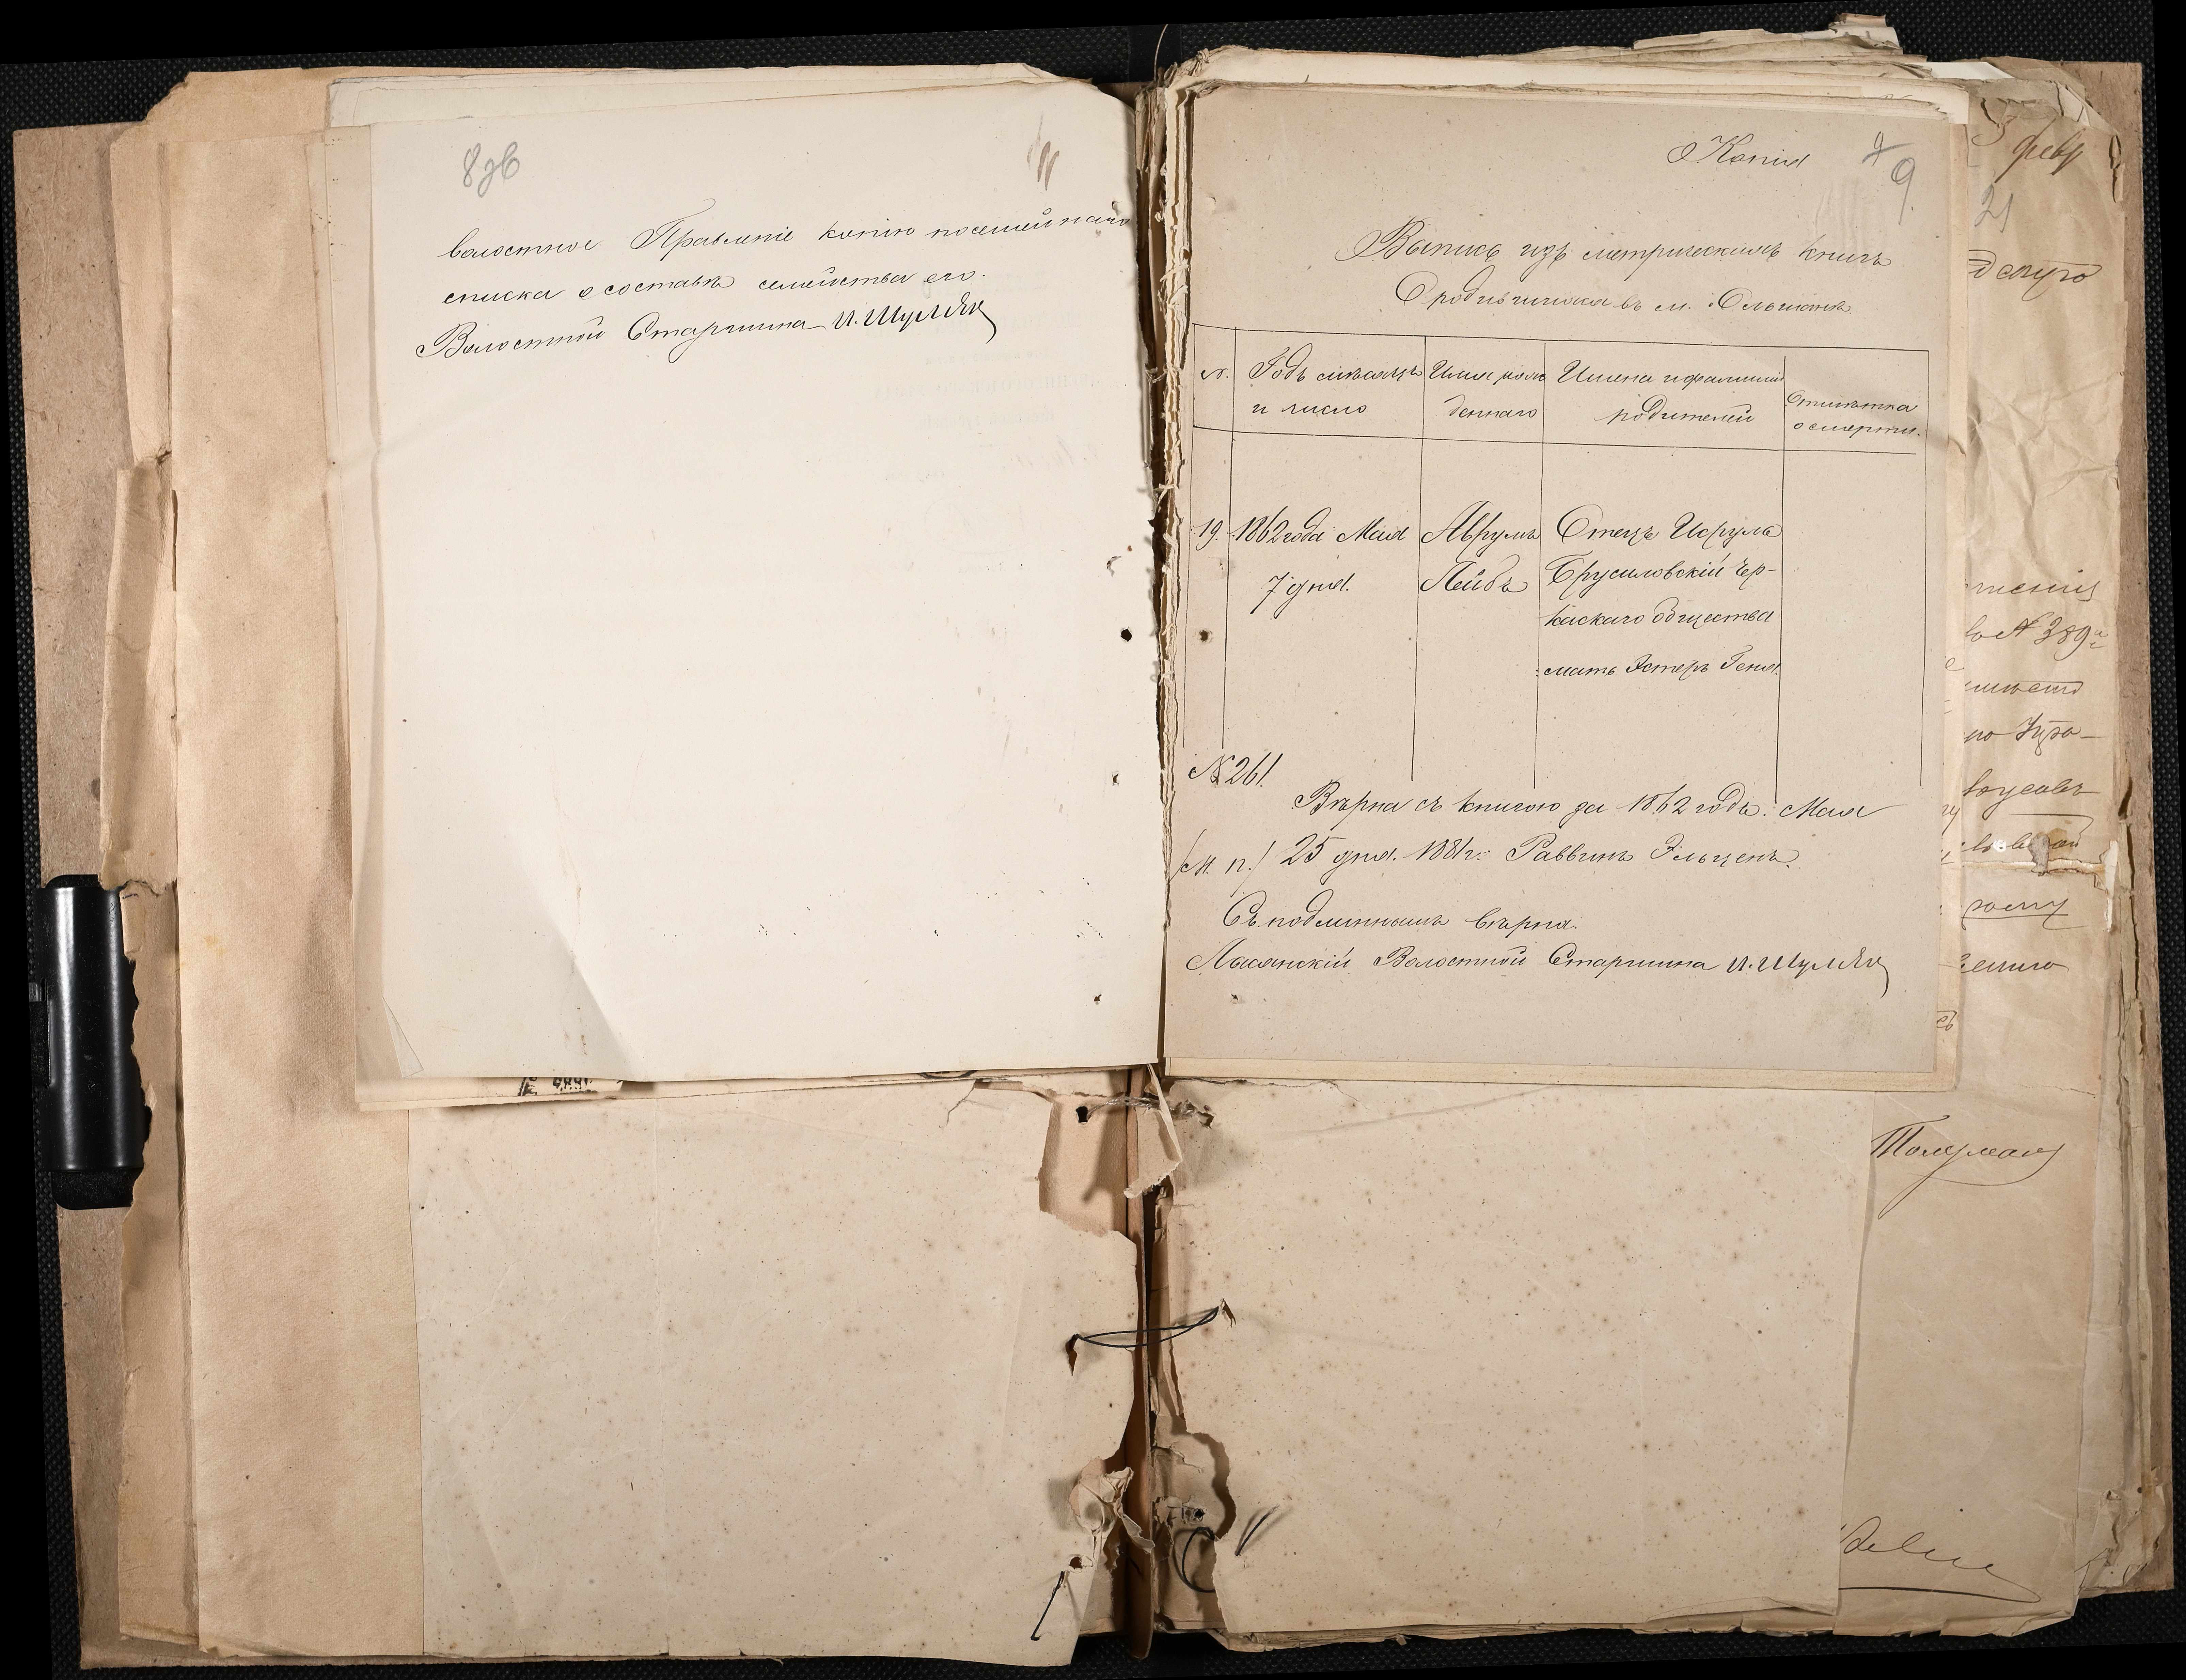 8об
волостное Правленіе копію посемейнаго
списка о составѣ семейства его.
Волостной Старшина И. Шуляк
Копія
9.
Выпись изъ метрическихъ книгъ
О родившихся въ м. Ольшанѣ
№. Годъ мѣсяцъ и число
Имя рожденнаго
Имена и фамиліи родителей
Отмѣтка о смерти.
19. 1862 года Мая Аврумъ Отецъ Исруль
7 дня. Лейбъ Брусиловскій Чер-
каскаго общества
мать Эстеръ Геня.
№ 261.
Вѣрна съ книгою за 1862 годъ. Мая
/М. п./ 25 дня. 1881 г. Раввинъ Эльценъ.
Съ подлиннымъ вѣрна.
Лысянскій Волостной Старшина И. Шуляк
февр
21
№ 389